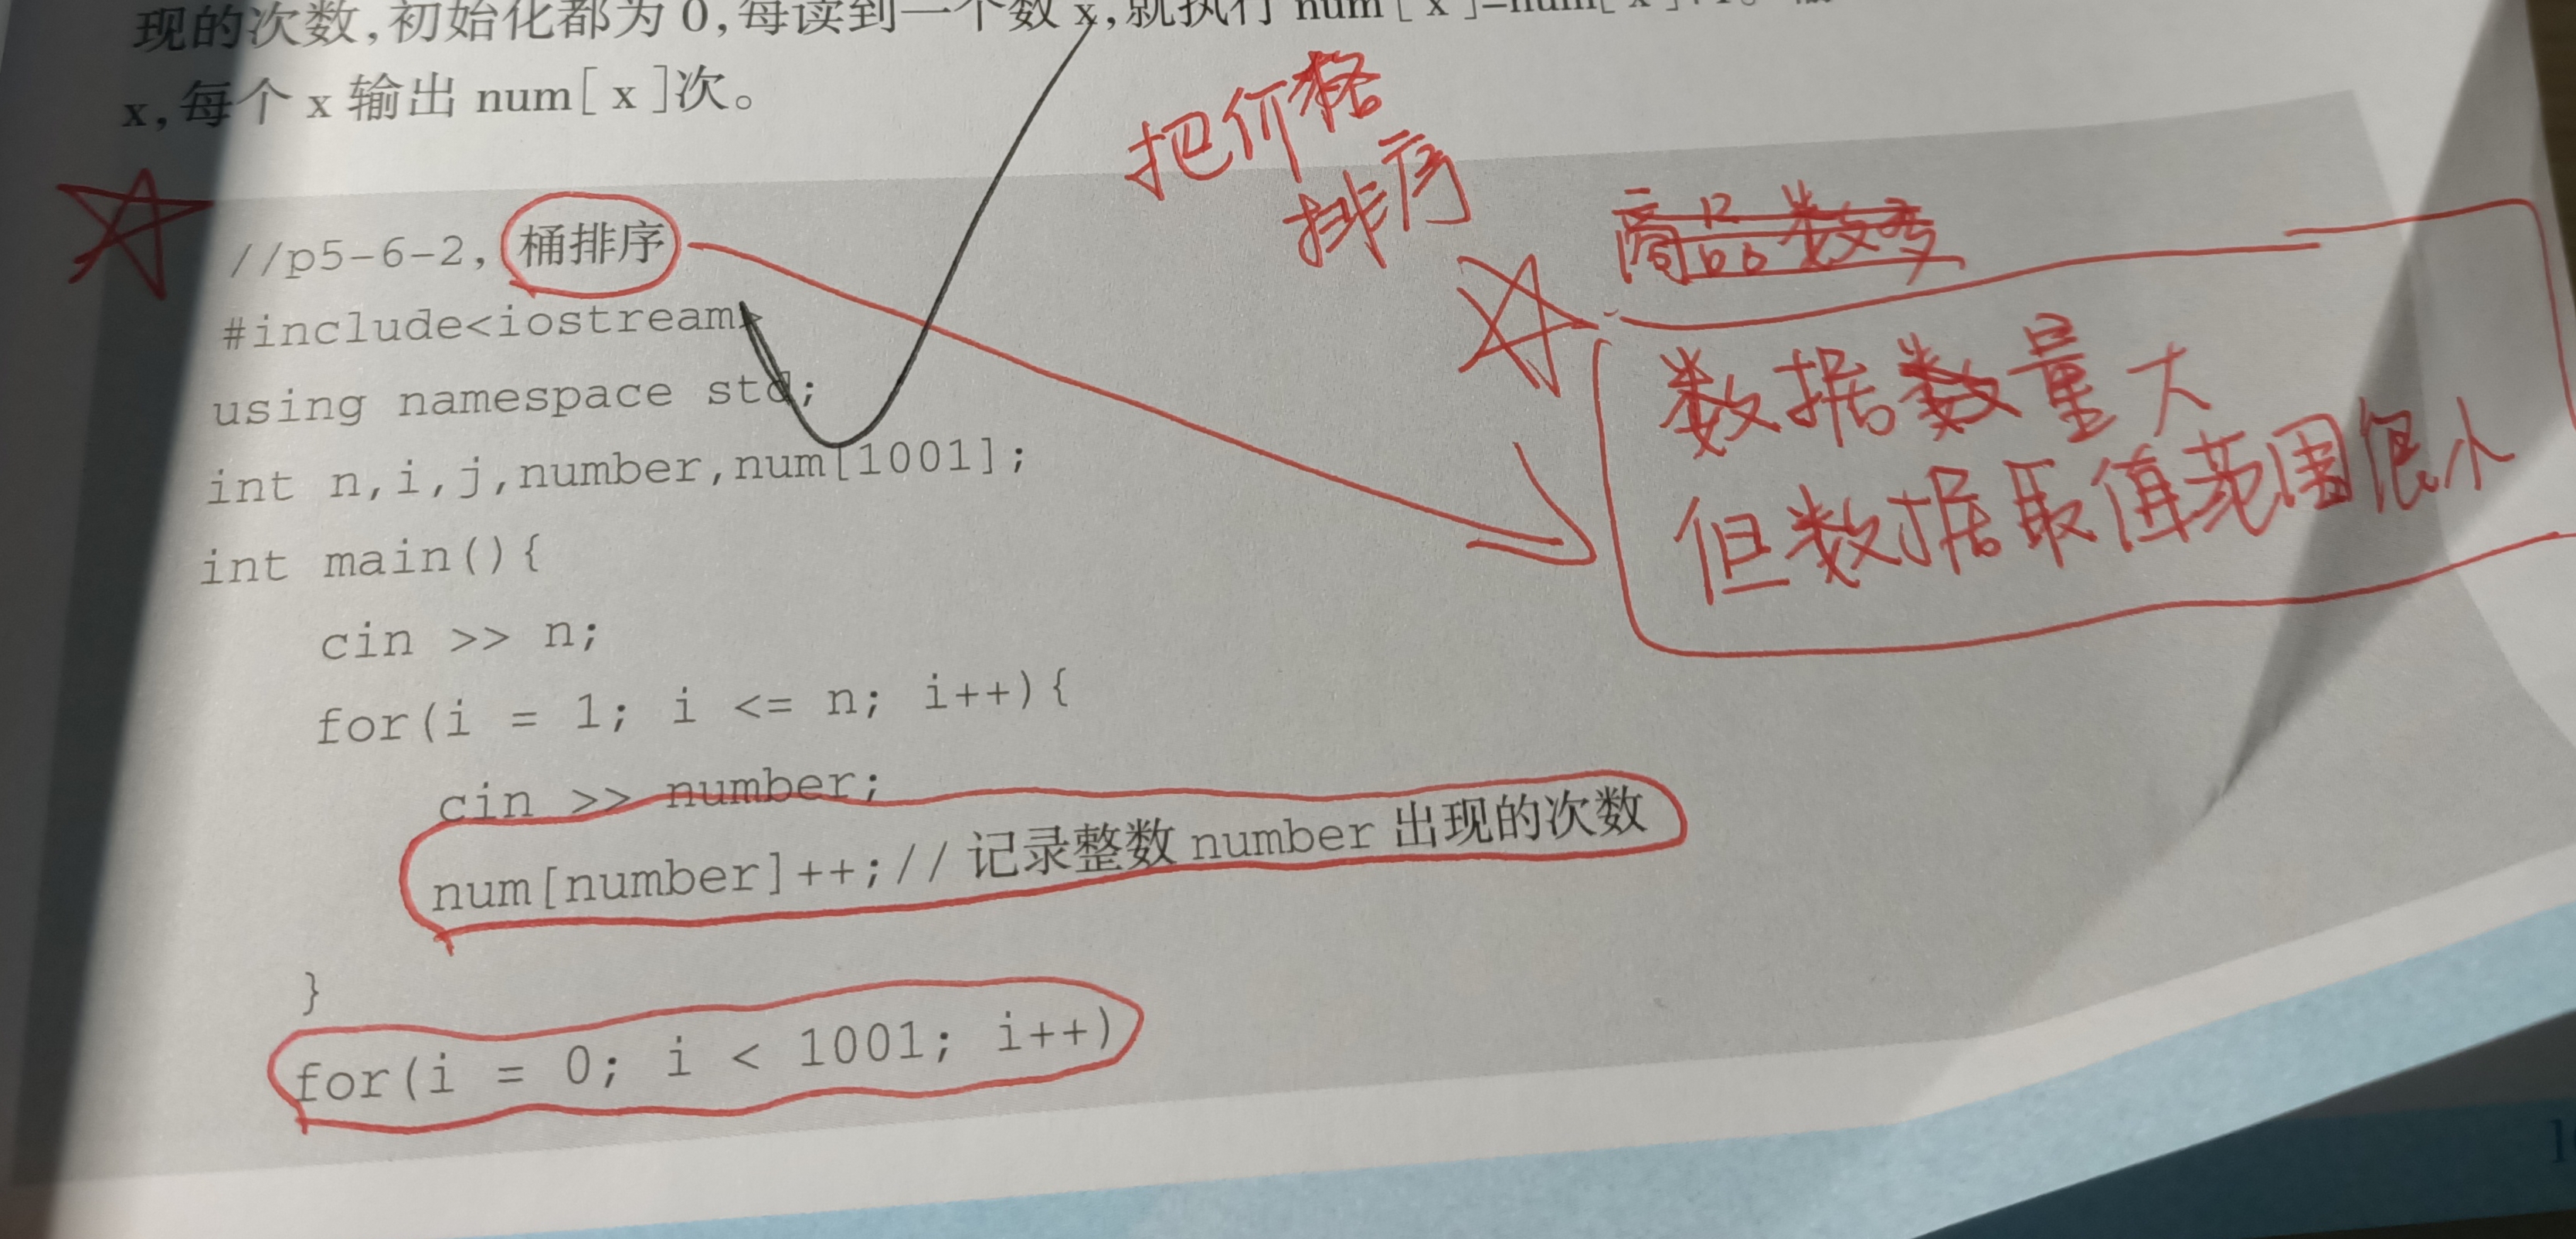 现的次数,初始化都为0,每读到一个数x,就执行num[x]=num[x]+1。
x,每个x输出num[x]次。
把价格
排序
//p5-6-2,桶排序
#include<iostream>
using namespace std;
int n,i,j,number,num[1001];
int main(){
cin >> n;
for(i = 1; i <= n; i++){
cin >> number;
num[number]++;//记录整数number出现的次数
}
for(i = 0; i < 1001; i++)
商品数多
数据数量大
但数据取值范围很小